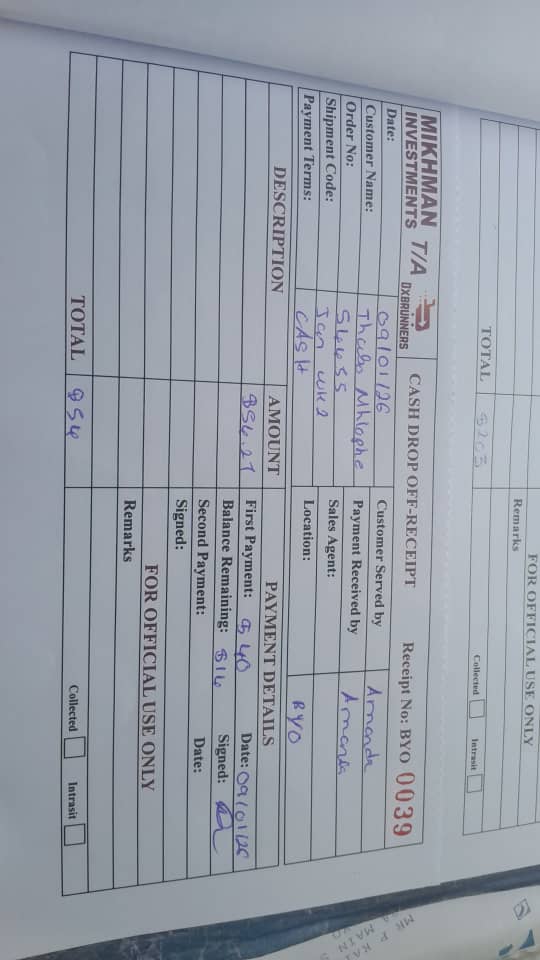 FOR OFFICIAL USE ONLY
Remarks
TOTAL $203
Collected Intrasit
MIKHMAN T/A DXBRUNNERS
INVESTMENTS
CASH DROP OFF-RECEIPT Receipt No: BYO 0039
Date: 09/01/26 Customer Served by Amanda
Customer Name: Thabo Mhlophe Payment Received by Amanda
Order No: 54455 Sales Agent:
Shipment Code: Jan wk2 Location: BYO
Payment Terms: CASH
DESCRIPTION AMOUNT PAYMENT DETAILS
$54.27 First Payment: $40 Date: 09/01/26
Balance Remaining: $14 Signed:
Second Payment: Date:
Signed:
FOR OFFICIAL USE ONLY
Remarks
TOTAL $54
Collected Intrasit
MAIN